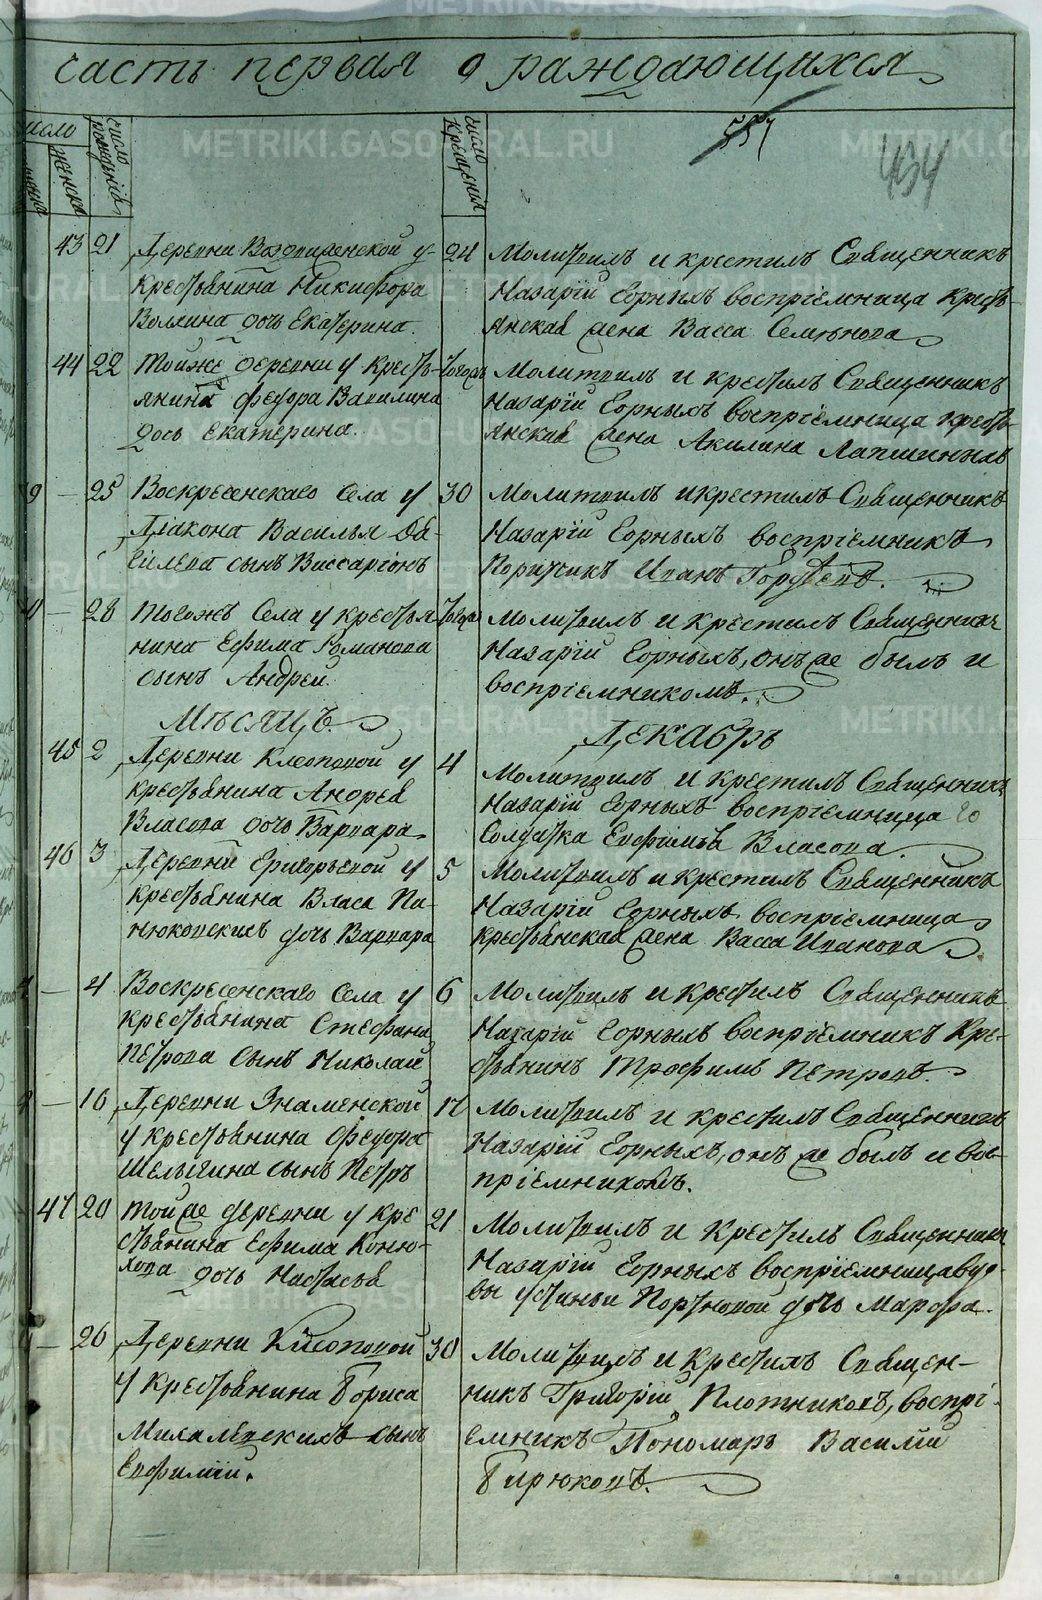 часть первая о раждающихся
557
434
число
женска
число рождения
число крещения
43 21 Деревни Воздвиженской у
крестьянина Никифора
Волкина дочь Екатерина.
24 Молитвилъ и крестилъ Священникъ
Назарій Горныхъ воспріемница кресть
янская жена Васса Семенова
44 22 Тойже деревни у кресть-
янина Федора Вавилина
дочь Екатерина.
Тогожъ Молитвилъ и крестилъ Священникъ
Назарій Горныхъ воспріемница кресть
янская жена Акилина Лапшиныхъ
9 — 25 Воскресенскаго Села у
Діакона Василья
сынъ Виссаріонъ
30 Молитвилъ и крестилъ Священникъ
Назарій Горныхъ воспріемникъ
Поручикъ Иванъ
— 28 Тогожъ Села у крестья
нина Ефима Романова
сынъ Андрей.
Молитвилъ и крестилъ Священникъ
Назарій Горныхъ, онъ же былъ и
воспріемникомъ.
Мѣсяцъ Декабрь
45 2 Деревни Клеопиной у
крестьянина Андрея
Власова дочь Варвара
4 Молитвилъ и крестилъ Священникъ
Назарій Горныхъ воспріемница
Солдатка Евфимья Власова.
46 3 Деревни Григорьевской у
крестьянина Власа Па-
нюковскихъ дочь Варвара
5 Молитвилъ и крестилъ Священникъ
Назарій Горныхъ воспріемница
крестьянская жена Васса Иванова
— 4 Воскресенскаго Села у
крестьянина Стефана
Петрова сынъ Николай
6 Молитвилъ и крестилъ Священникъ
Назарій Горныхъ воспріемникъ Кре-
стьянинъ Трофимъ Петровъ.
— 16 Деревни Знаменской
у крестьянина Федора
Шелыгина сынъ Петръ
17 Молитвилъ и крестилъ Священникъ
Назарій Горныхъ, онъ же былъ и вос-
пріемникомъ.
47 20 Той же деревни у кре
стьянина Ефима Коню-
хова дочь Настасья
21 Молитвилъ и крестилъ Священникъ
Назарій Горныхъ воспріемница вдо-
вы Устиньи Портновой дочь Марфа.
— 26 Деревни Клеопиной
у крестьянина Бориса
Михалевскихъ сынъ
Евфимій.
30 Молитвилъ и крестилъ Священ-
никъ Григорій Плотниковъ, воспрі-
емникъ Пономарь Василій
Бирюковъ.